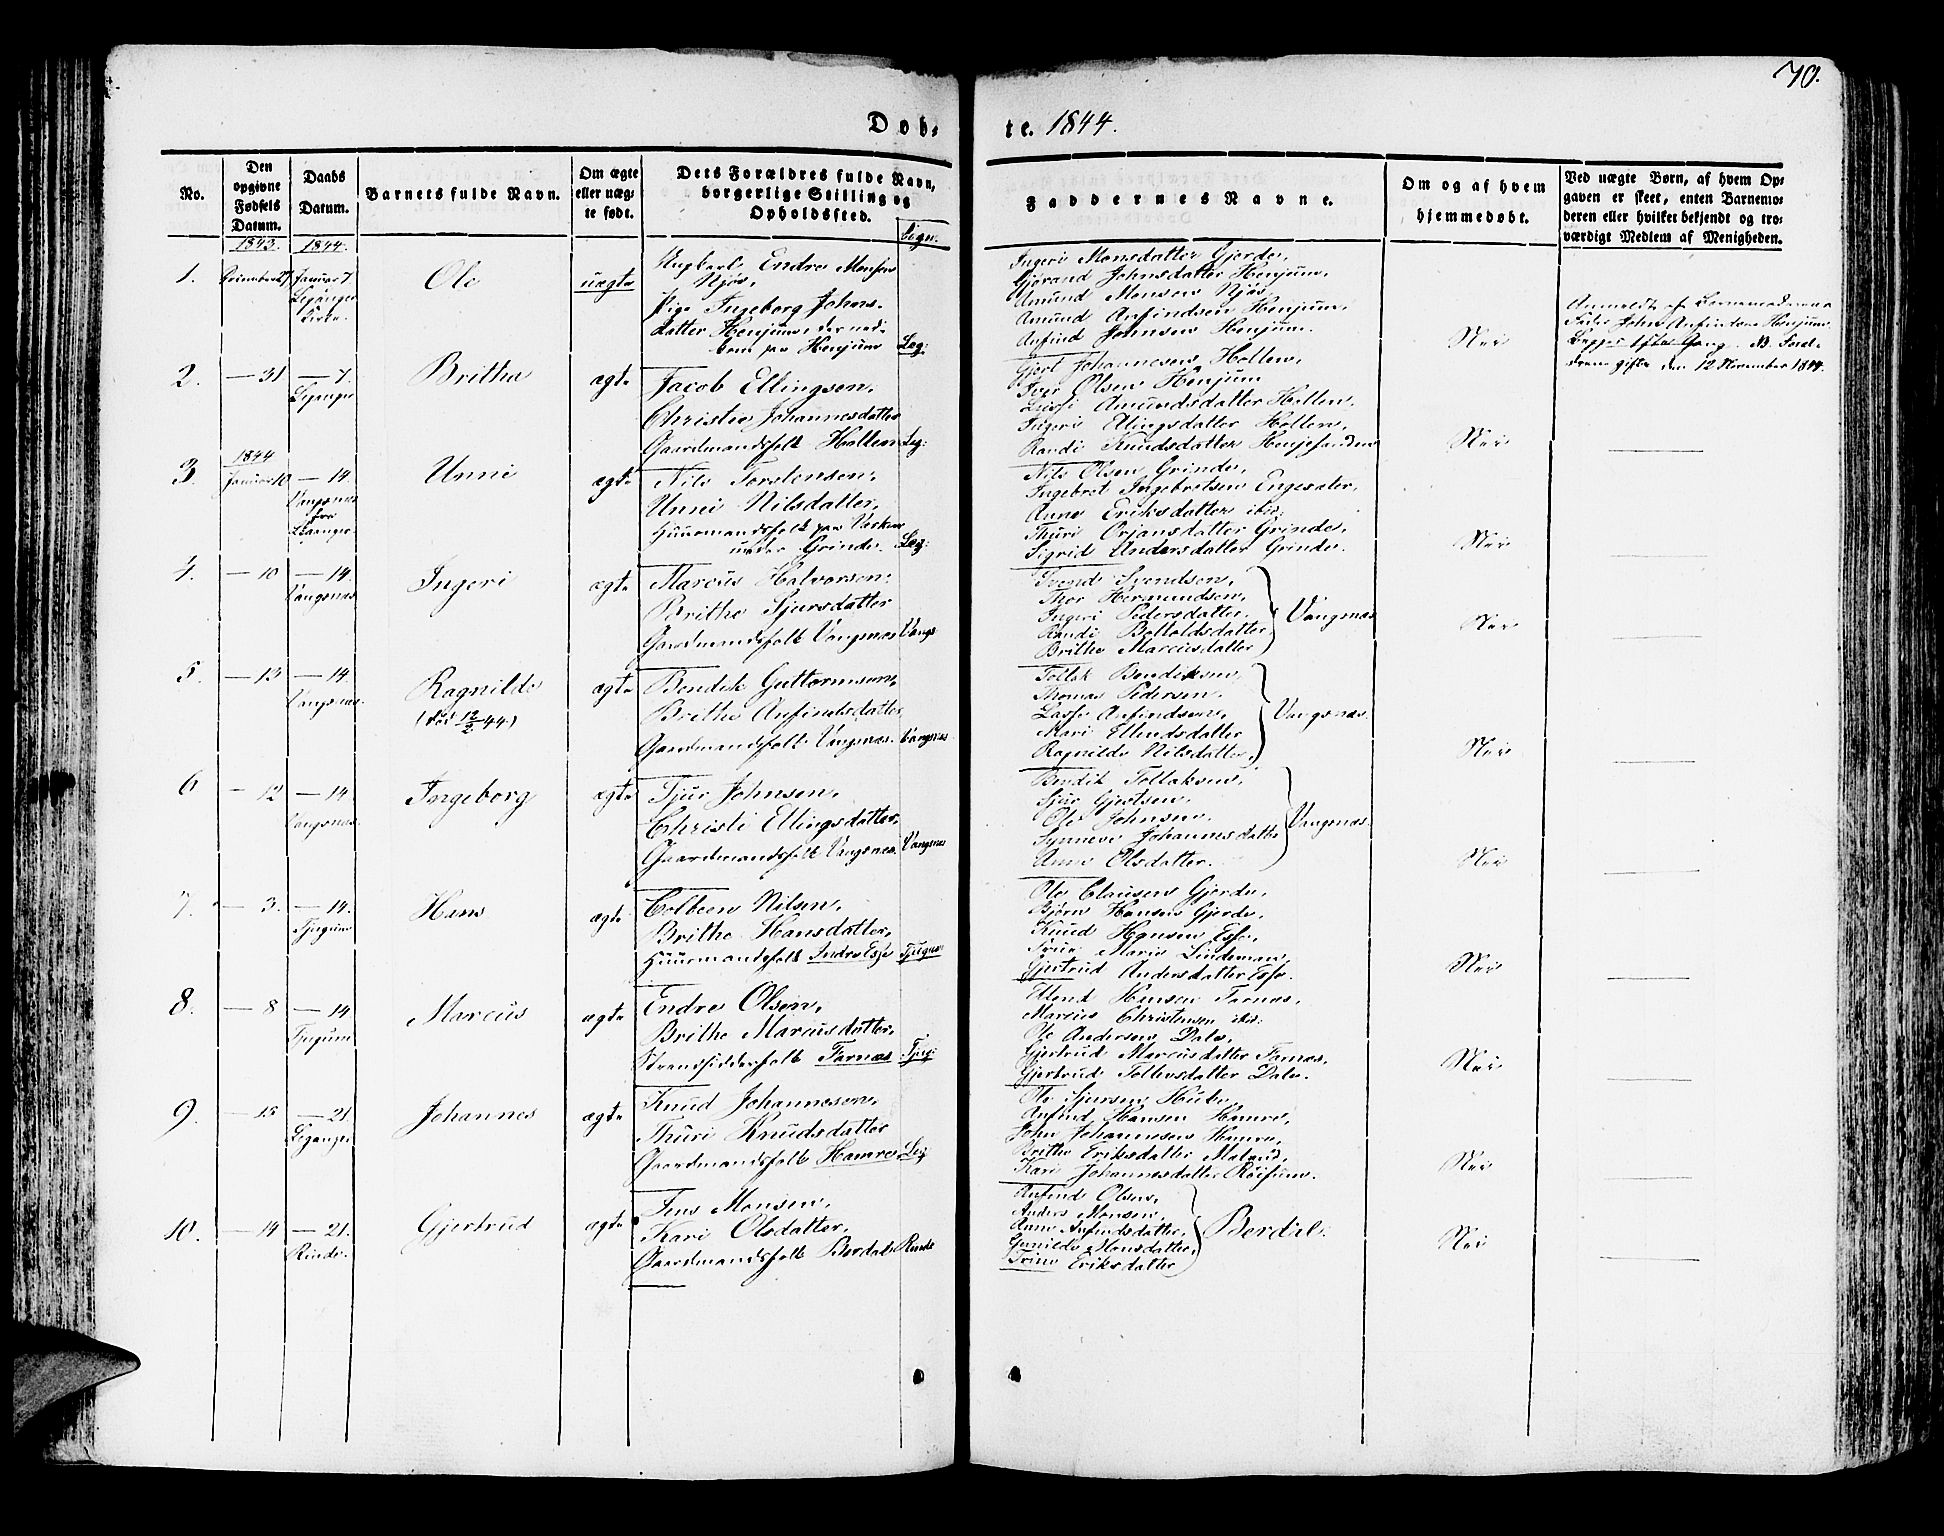 70.
Døb- te. 1844.
No.
Den opgivne Fødsels Datum.
Daabs Datum.
Barnets fulde Navn.
Om ægte eller uægte født.
Dets Forældres fulde Navn, borgerlige Stilling og Opholdssted.
Faddernes Navne.
Om og af hvem hjemmedøbt.
Ved uægte Børn, af hvem Opgaven er skeet, enten Barnemoderen eller hvilket bekjendt og troværdigt Medlem af Menigheden.
1843. 1844.
1. December 27 Januar 7. Leganger Kirke.
Ole
uægte
Ungkarl Endre Monsen
Njøs,
Pige Ingeborg Johns-
datter Henjum,
paa Henjum Leg:
Ingeri Monsdatter Gjerde,
Gjørand Johnsdatter Henjum,
Amund Monsen Njøs,
Amund Anfindsen Henjum,
Anfind Johnsen Henjum.
Nei
Anmeldt af Barnemoderens
Fader John Anfindsen Henjum.
gifte den 12 November 1844.
2. — 31 — 7. Leganger
Britha
ægte
Jacob Ellingsen,
Christie Johannesdatter
Gaardmandsfolk Hallen Leg:
Gjert Johannesen Hollen,
Iver Olsen Henjum
Amundsdatter Hollen,
Ingeri Ellingsdatter Hollen,
Randi Knudsdatter
Nei
1844
3. Januar 10 — 14. Vangsnæs fra Leganger
Unni
ægte
Nils Torstensen,
Unni Nilsdatter,
Huusmandsfolk paa
under Grinde. Leg:
Nils Olsen Grinde,
Ingebret Ingebretsen Engesæter,
Anne Eriksdatter ibid:
Thuri Orjansdatter Grinde,
Sigrid Andersdatter Grinde.
Nei
4. — 10 — 14. Vangsnæs
Ingeri
ægte
Marcus Halvorsen,
Brithe Sjursdatter
Gaardmandsfolk Vangsnæs Vangs
Svend Svendsen,
Thor Hermundsen,
Ingeri Pedersdatter,
Randi Botholdsdatter,
Brithe Marcusdatter
Vangsnæs
Nei
5. — 13 — 14. Vangsnæs.
Ragnilde
(død 12/2 44)
ægte
Bendik Guttormsen,
Brithe Anfindsdatter,
Gaardmandsfolk Vangsnæs. Vangsnæs
Tollak Bendiksen,
Thomas Pedersen,
Lasse Anfindsen,
Mari Ellendsdatter
Ragnilde Nilsdatter,
Vangsnæs.
Nei
6 — 12 — 14. Vangsnæs.
Ingeborg
ægte
Sjur Johnsen,
Christi Ellingsdatter,
Gaardmandsfolk Vangsnæs. Vangsnæs
Bendik Tollaksen,
Sjur Gjertsen,
Ole Johnsen,
Synneve Johannesdatter
Anne Olsdatter.
Vangsnæs.
Nei
7. — 3. — 14. Tjugum
Hans
ægte
Colbeen Nilsen,
Brithe Hansdatter,
Huusmandsfolk Indre Esse Tjugum
Ole Clausen Gjerde,
Bjørn Hansen Gjerde,
Knud Hansen Esse,
Frue Marie Lindeman,
Gjertrud Andersdatter Esse.
Nei
8. — 8 — 14 Tjugum
Marcus
ægte
Endre Olsen,
Brithe Marcusdatter,
Strandsidderfolk Farnæs Tjug:
Ellend Hansen Farnæs,
Marcus Christensen ibid:
Ole Andersen Dale,
Gjertrud Marcusdatter Farnæs,
Gjertrud Tollevsdatter Dale.
Nei
9. — 15 — 21. Leganger
Johannes
ægte
Knud Johannesen,
Thuri Knudsdatter
Gaardmandsfolk Hamre Leg
Ole Sjursen Hube,
Anfind Hansen Hamre,
John Johannesen Hamre,
Brithe Eriksdatter
Kari Johannesdatter
Nei
10. — 14 — 21. Rinde.
Gjertrud
ægte
Jens Monsen,
Kari Olsdatter,
Gaardmandsfolk Berdal Rinde
Anfind Olsen,
Anders Monsen,
Anne Anfindsdatter,
Gunnilde Monsdatter,
Trine Eriksdatter
Berdal.
Nei